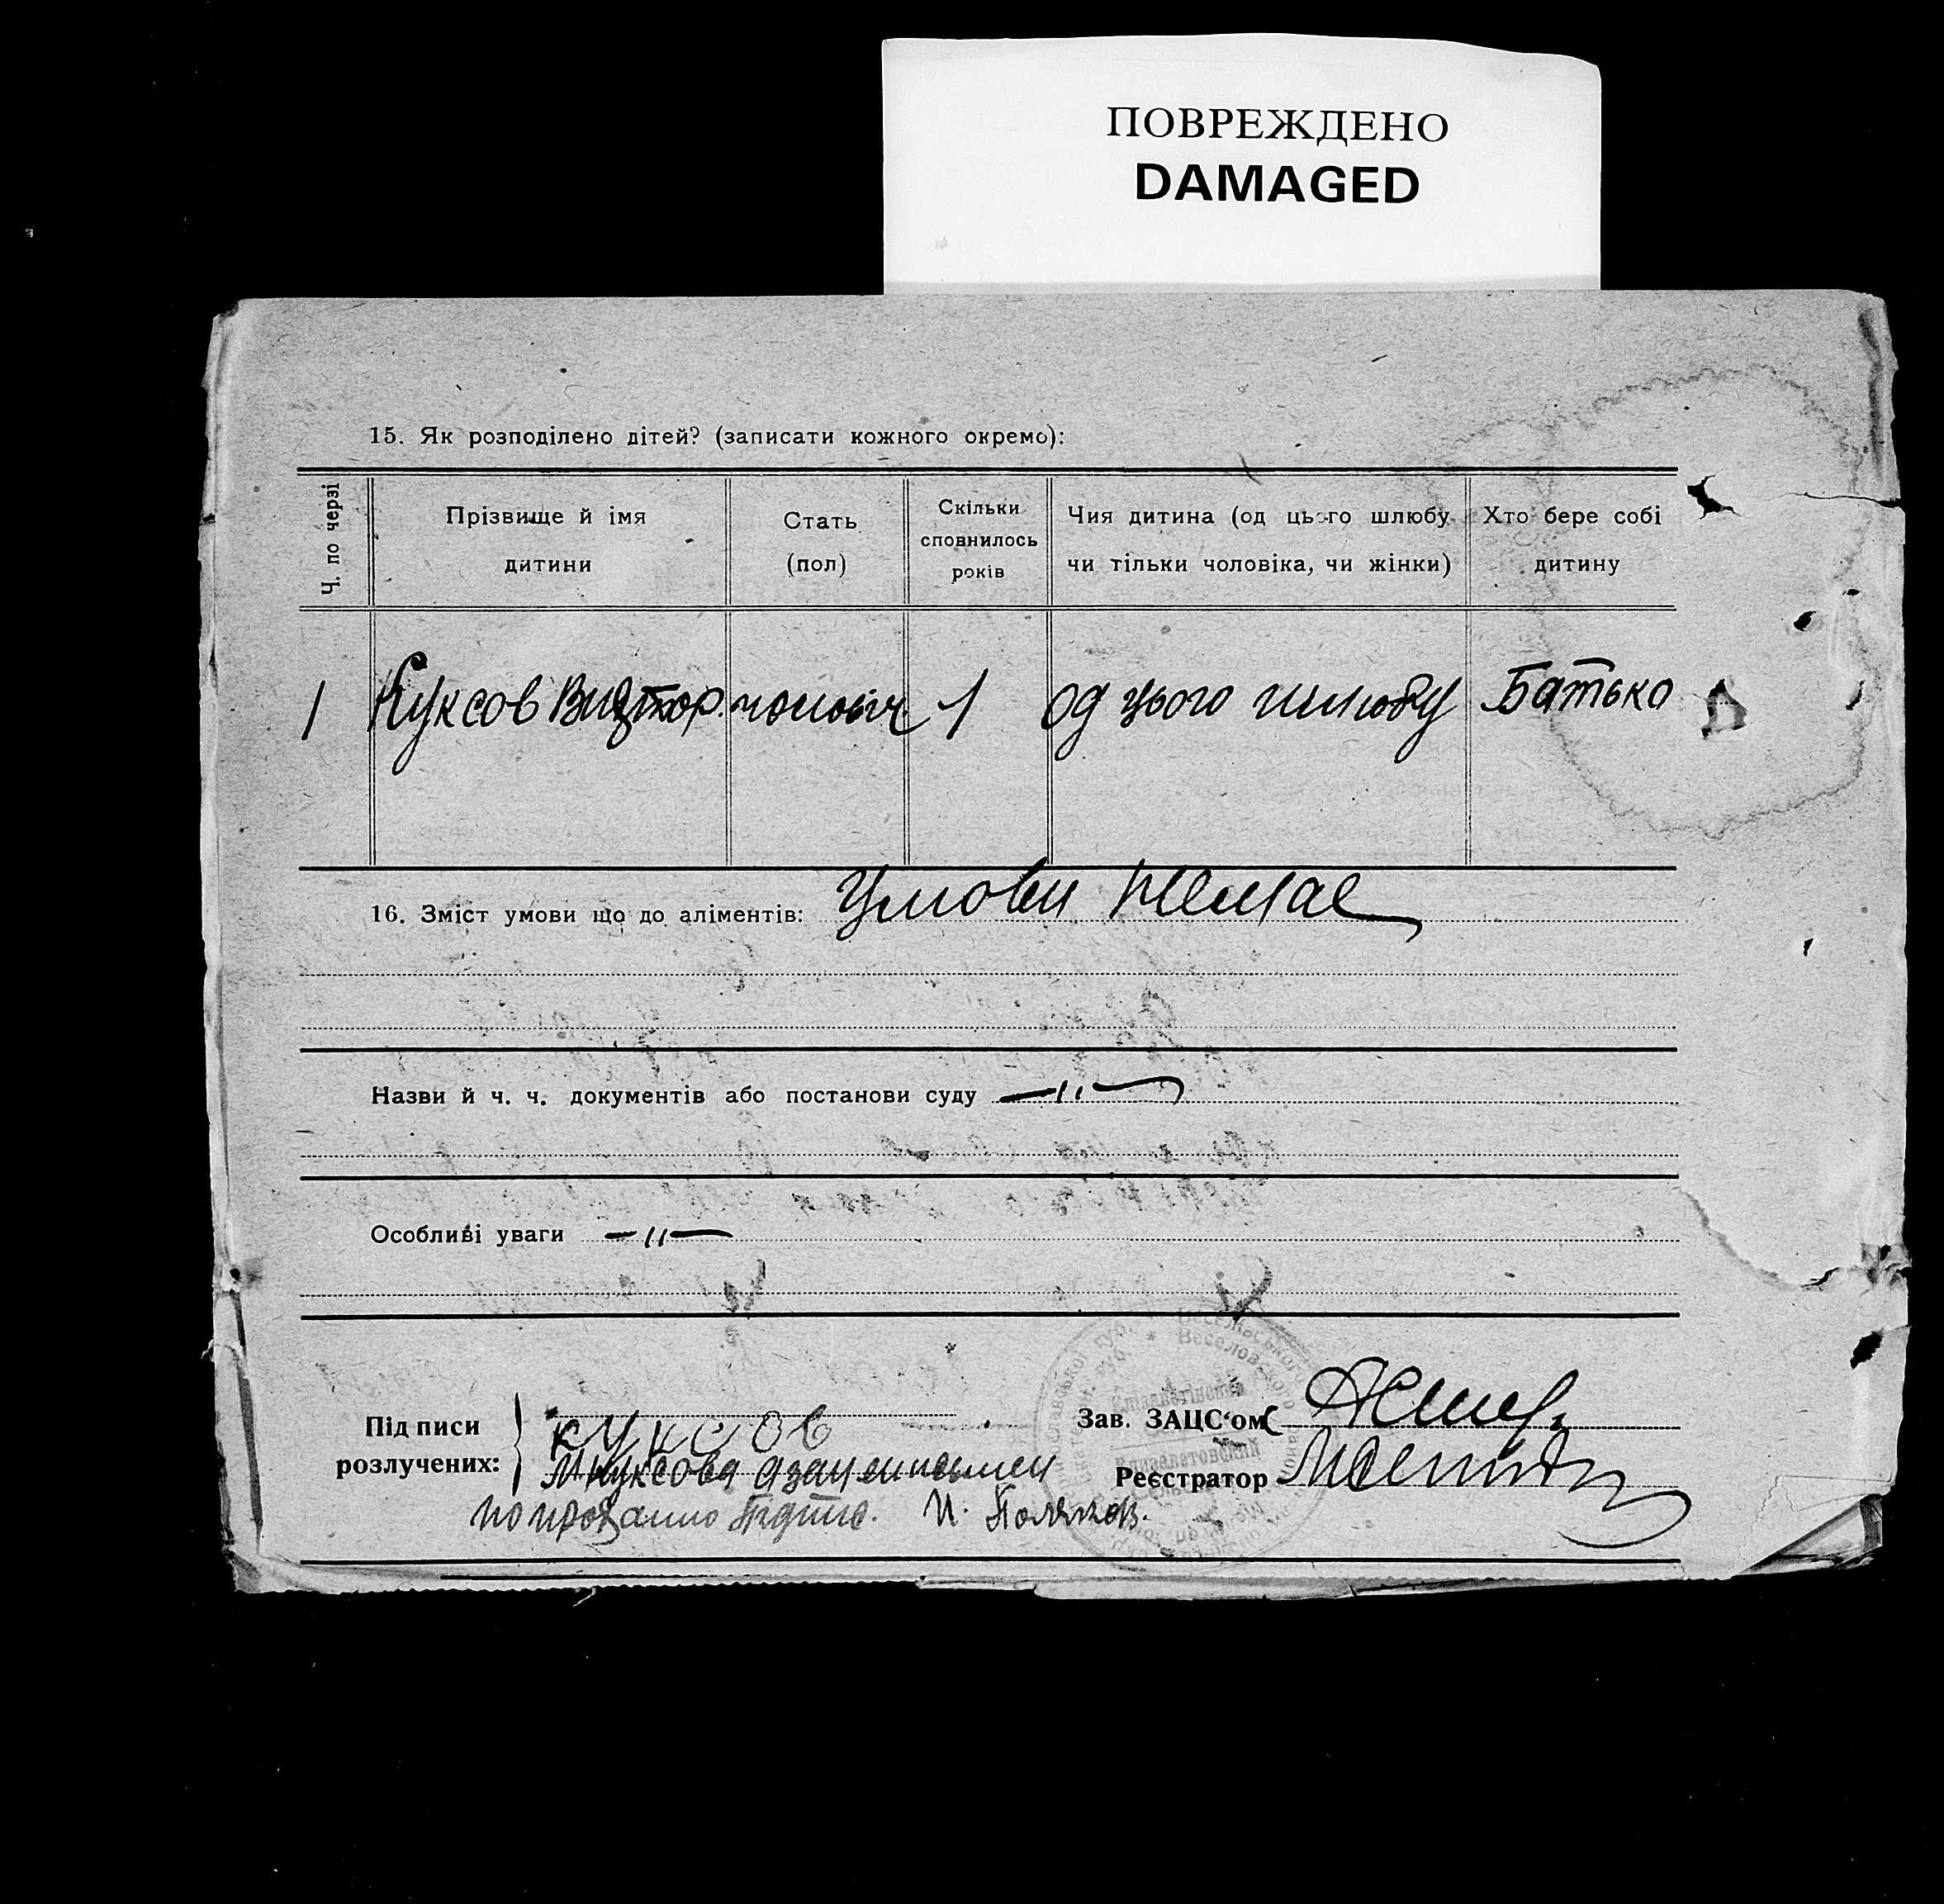 ПОВРЕЖДЕНО
DAMAGED
15. Як розподілено дітей? (записати кожного окремо):
Ч. по черзі
Прізвище й імя дитини
Стать (пол)
Скільки сповнилось років
Чия дитина (од цього шлюбу чи тільки чоловіка, чи жінки)
Хто бере собі дитину
1 Куксов Виктор. чоловіч 1 од цього шлюбу Батько
16. Зміст умови що до аліментів: Умови немае
Назви й ч. ч. документів або постанови суду —"—
Особливі уваги —"—
Підписи розлучених:
Куксов
Куксова
Зав. ЗАЦС'ом
Реєстратор
И. Поляков.
Веселовского
Елизаветовский